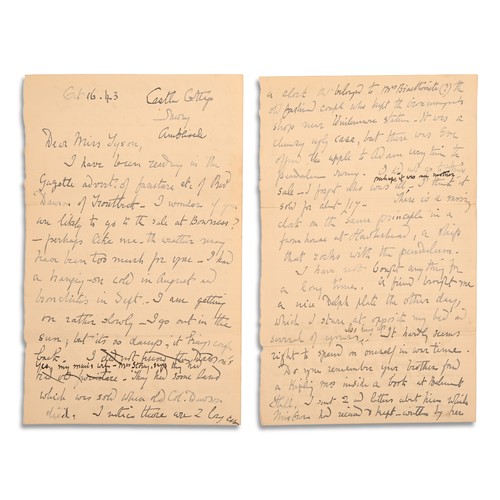 Oct 16. 43 Castle Cottage
Sawrey
Ambleside
Dear Miss Tyson,
I have been reading in the
Gazette advert. of furniture etc. of
Dawson of Troutbeck - I wonder if you
are likely to go to the sale at Bowness?
- perhaps like me - the weather may
have been too much for you - I had
a hanging-on cold in August and
bronchitis in Sept. I am getting
on rather slowly - I go out in the
sun; but it's so damp, it
back. - I did not
Yes, my man is - Mrs says they had
- They had some land
which was sold when old Col. Dawson
died. I notice there are 2 long case
a clock belonged to Mrs Braithwaite (?) the
old fashioned couple who kept the
shop near Windermere station. It was a
clumsy ugly case, but there was Eve
offering the apple to Adam every time the
pendulum swung. - perhaps it was my mother's
sale - I forget who was ill. I think it
sold for abt £17 - There is a
clock on the same principle in a
farm house at Hawkshead, a ship
that rocks with the pendulum.
I have not bought anything for
a long time. A friend brought me
a nice Delph plate the other day,
which I stare at, opposite my bed and
It hardly seems
right to spend on oneself in war time.
Do you remember your brother found
a inside a book at Belmount
Hall. I sent 2 letters about which
had received & kept - written by